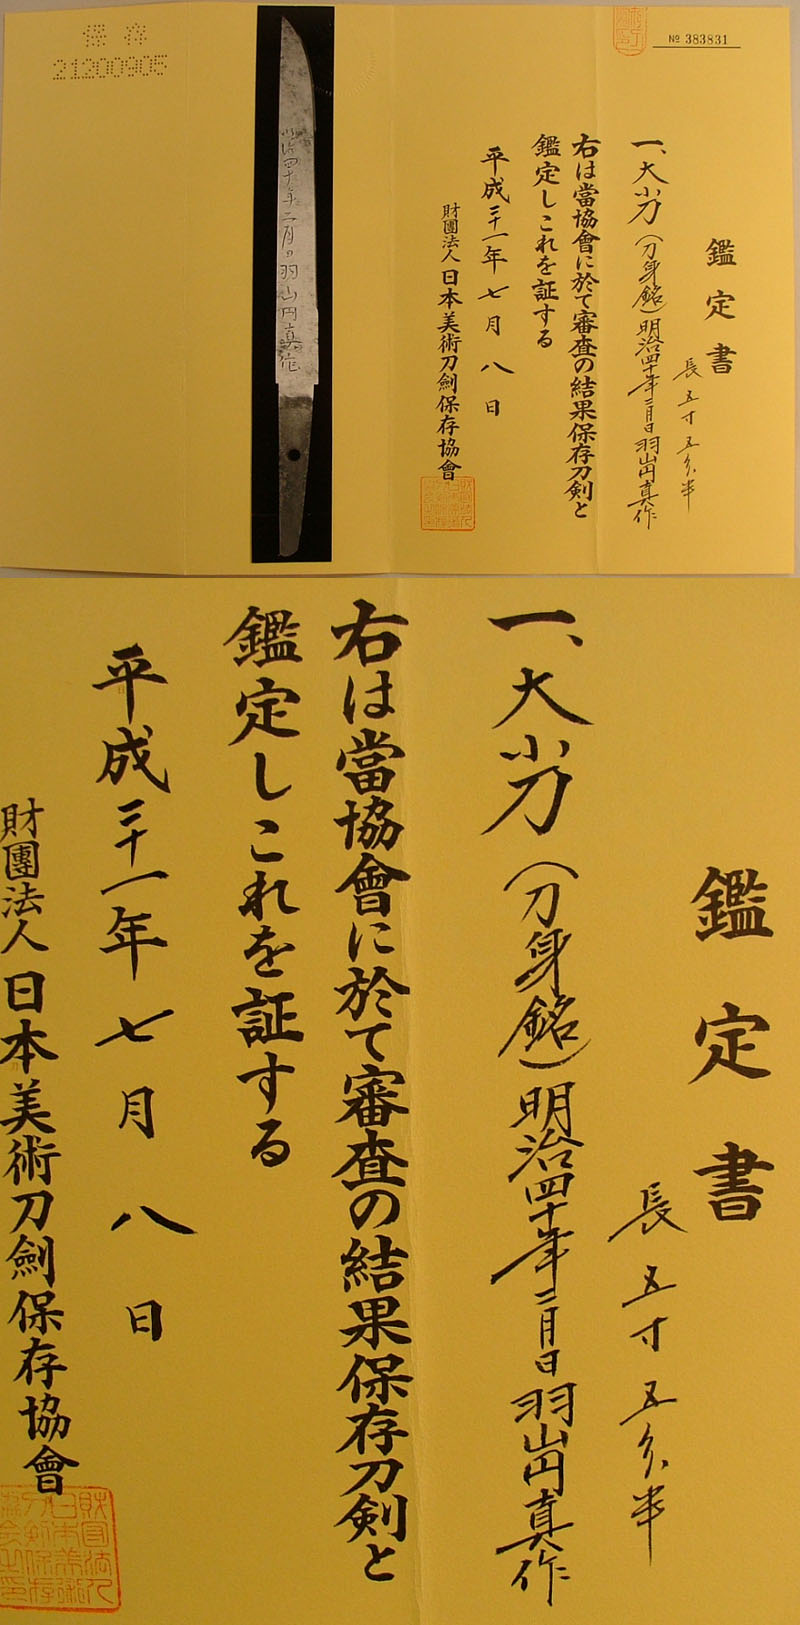 № 383831
鑑定書
長五寸五分半
一、大小刀（刀身銘）明治四十年二月日羽山円真作
右は當協會に於て審査の結果保存刀剣と
鑑定しこれを証する
平成二十一年七月八日
財團法人日本美術刀劍保存協會
明治四十年二月日羽山円真作
保存
21200905
鑑定書
長五寸五分半
一、大小刀（刀身銘）明治四十年二月日羽山円真作
右は當協會に於て審査の結果保存刀剣と
鑑定しこれを証する
平成二十一年七月八日
財團法人日本美術刀劍保存協會